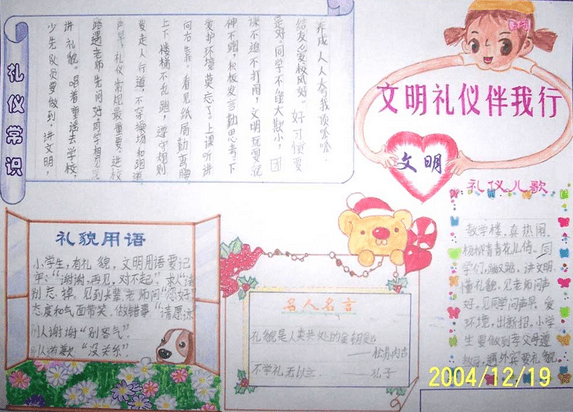 文明礼仪伴我行
文明
礼仪常识
少先队员要做到:讲文明,
讲礼貌。唱着童谣去学校
路遇老师先问好,同学相见
声早。礼仪常规最重要。进校
要走人行道,不穿操场和跑道
上下楼梯不乱跑,遵守规则
向右靠,看见纸屑勤弯腰
爱护环境莫忘了。上课听讲
神不溜,积极发言勤思考。下
课不追不打闹,文明玩耍
是好。同学不
结友爱校风好。好习惯要
养成,人人夸我顶呱呱。
礼貌用语
小学生,有礼貌,文明用语要记
牢:"谢谢,再见,对不起"。求人"请"
别忘掉。见到长辈老师问"您好"
态度和气面带笑。做错事"请原谅"
别人谢谢"别客气"
别人道歉"没关系"
名人名言
礼貌是人类共处的金钥匙
——松苏内吉
不学礼无以立 ——孔子
礼仪儿歌
教学楼,真热闹,
同
学们,讲文明,
懂礼貌,见老师问声
好,见同学问声早,爱
环境,小学
生要做到孝父母
2004/12/19